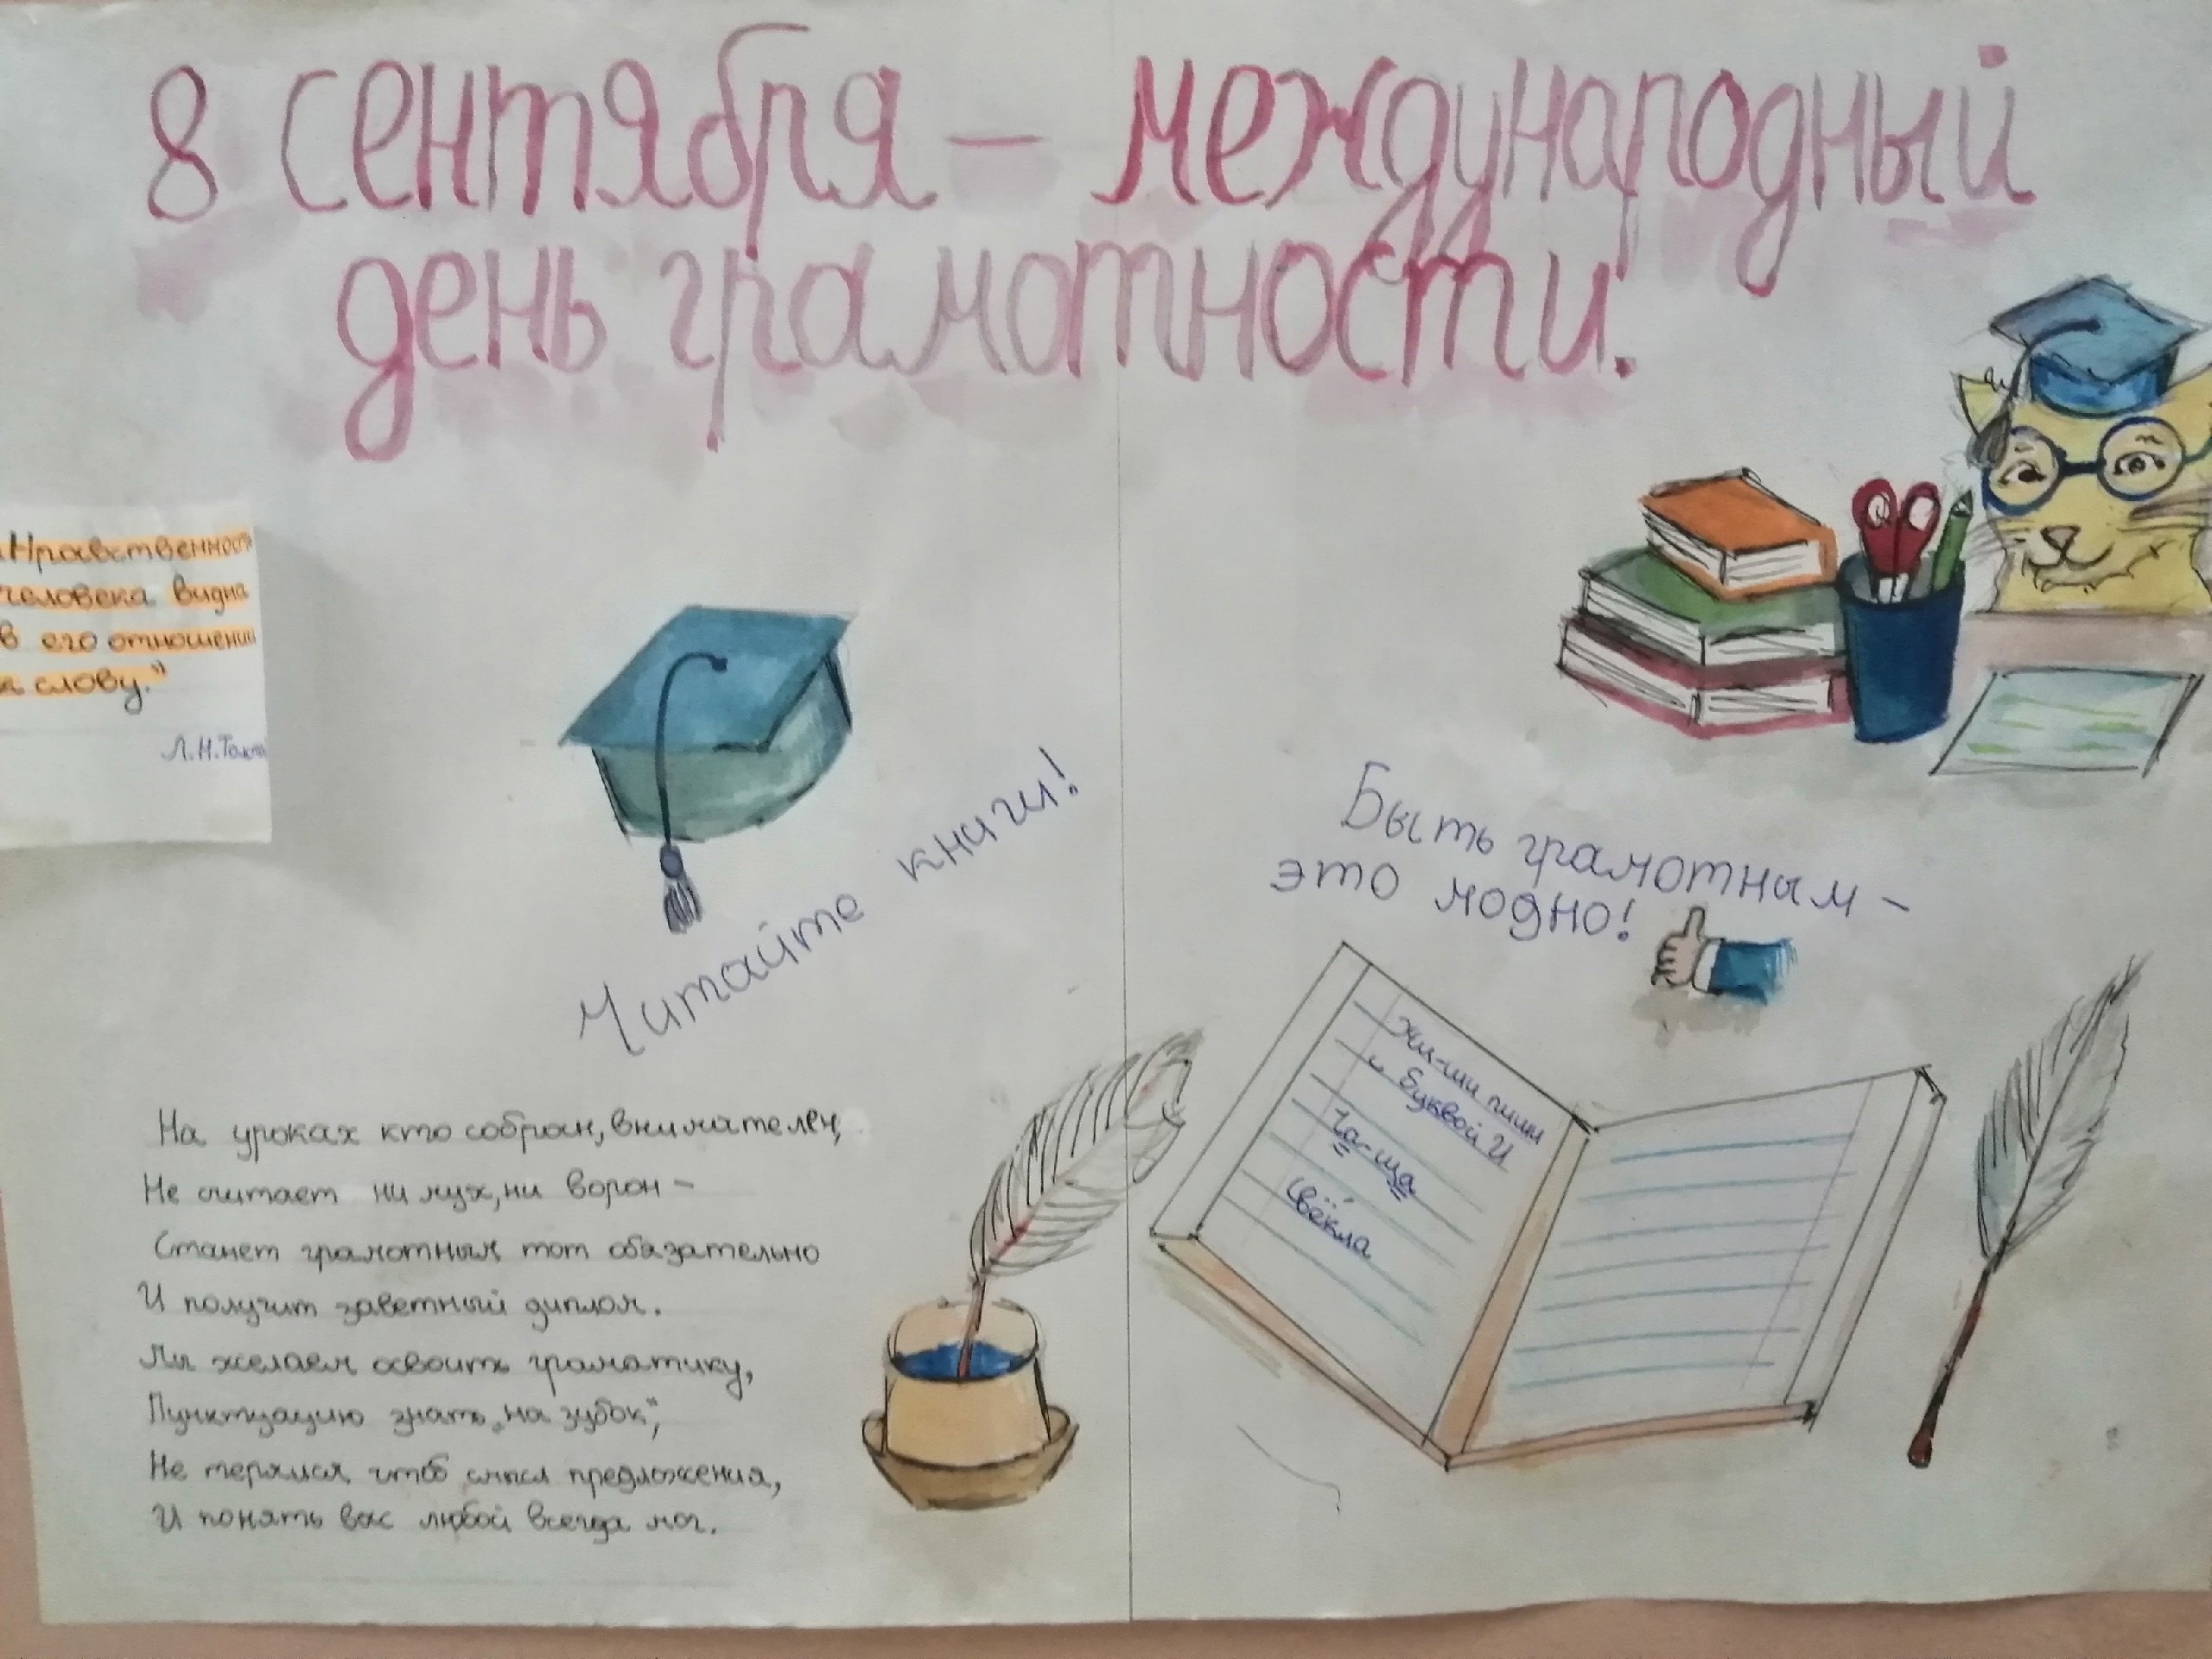 8 сентября – международный
день грамотности.
„Нравственность
человека видна
в его отношении
к слову."
Л.Н.Толст
Читайте книги!
Быть грамотным –
это модно!
Жи-ши пиши
с буквой И
Ча-ща
Свёкла
На уроках кто собран, внимателен,
Не считает ни мух, ни ворон –
Станет грамотным тот обязательно
И получит заветный диплом.
Мы желаем освоить граматику,
Пунктуацию знать „на зубок",
Не терялся чтоб смысл предложения,
И понять вас любой всегда мог.